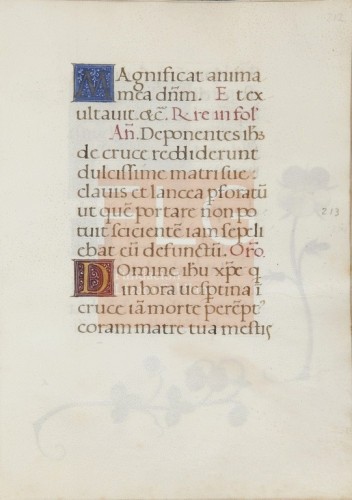 Magnificat anima
mea dñm. Et ex
ultavit. &c̃. R̃re in fol̃
Añ. Deponentes ihs̃
de cruce reddiderunt
dulcissime matri sue:
clavis et lancea pforatũ
ut quẽ portare non po
tuit scientẽ iam sepeli
ebat eũ defunctũ. Orõ.
Domine ihu xp̃e q̃
in hora uesptina ĩ
cruce iã morte perẽpt⁹
coram matre tua mestis
213